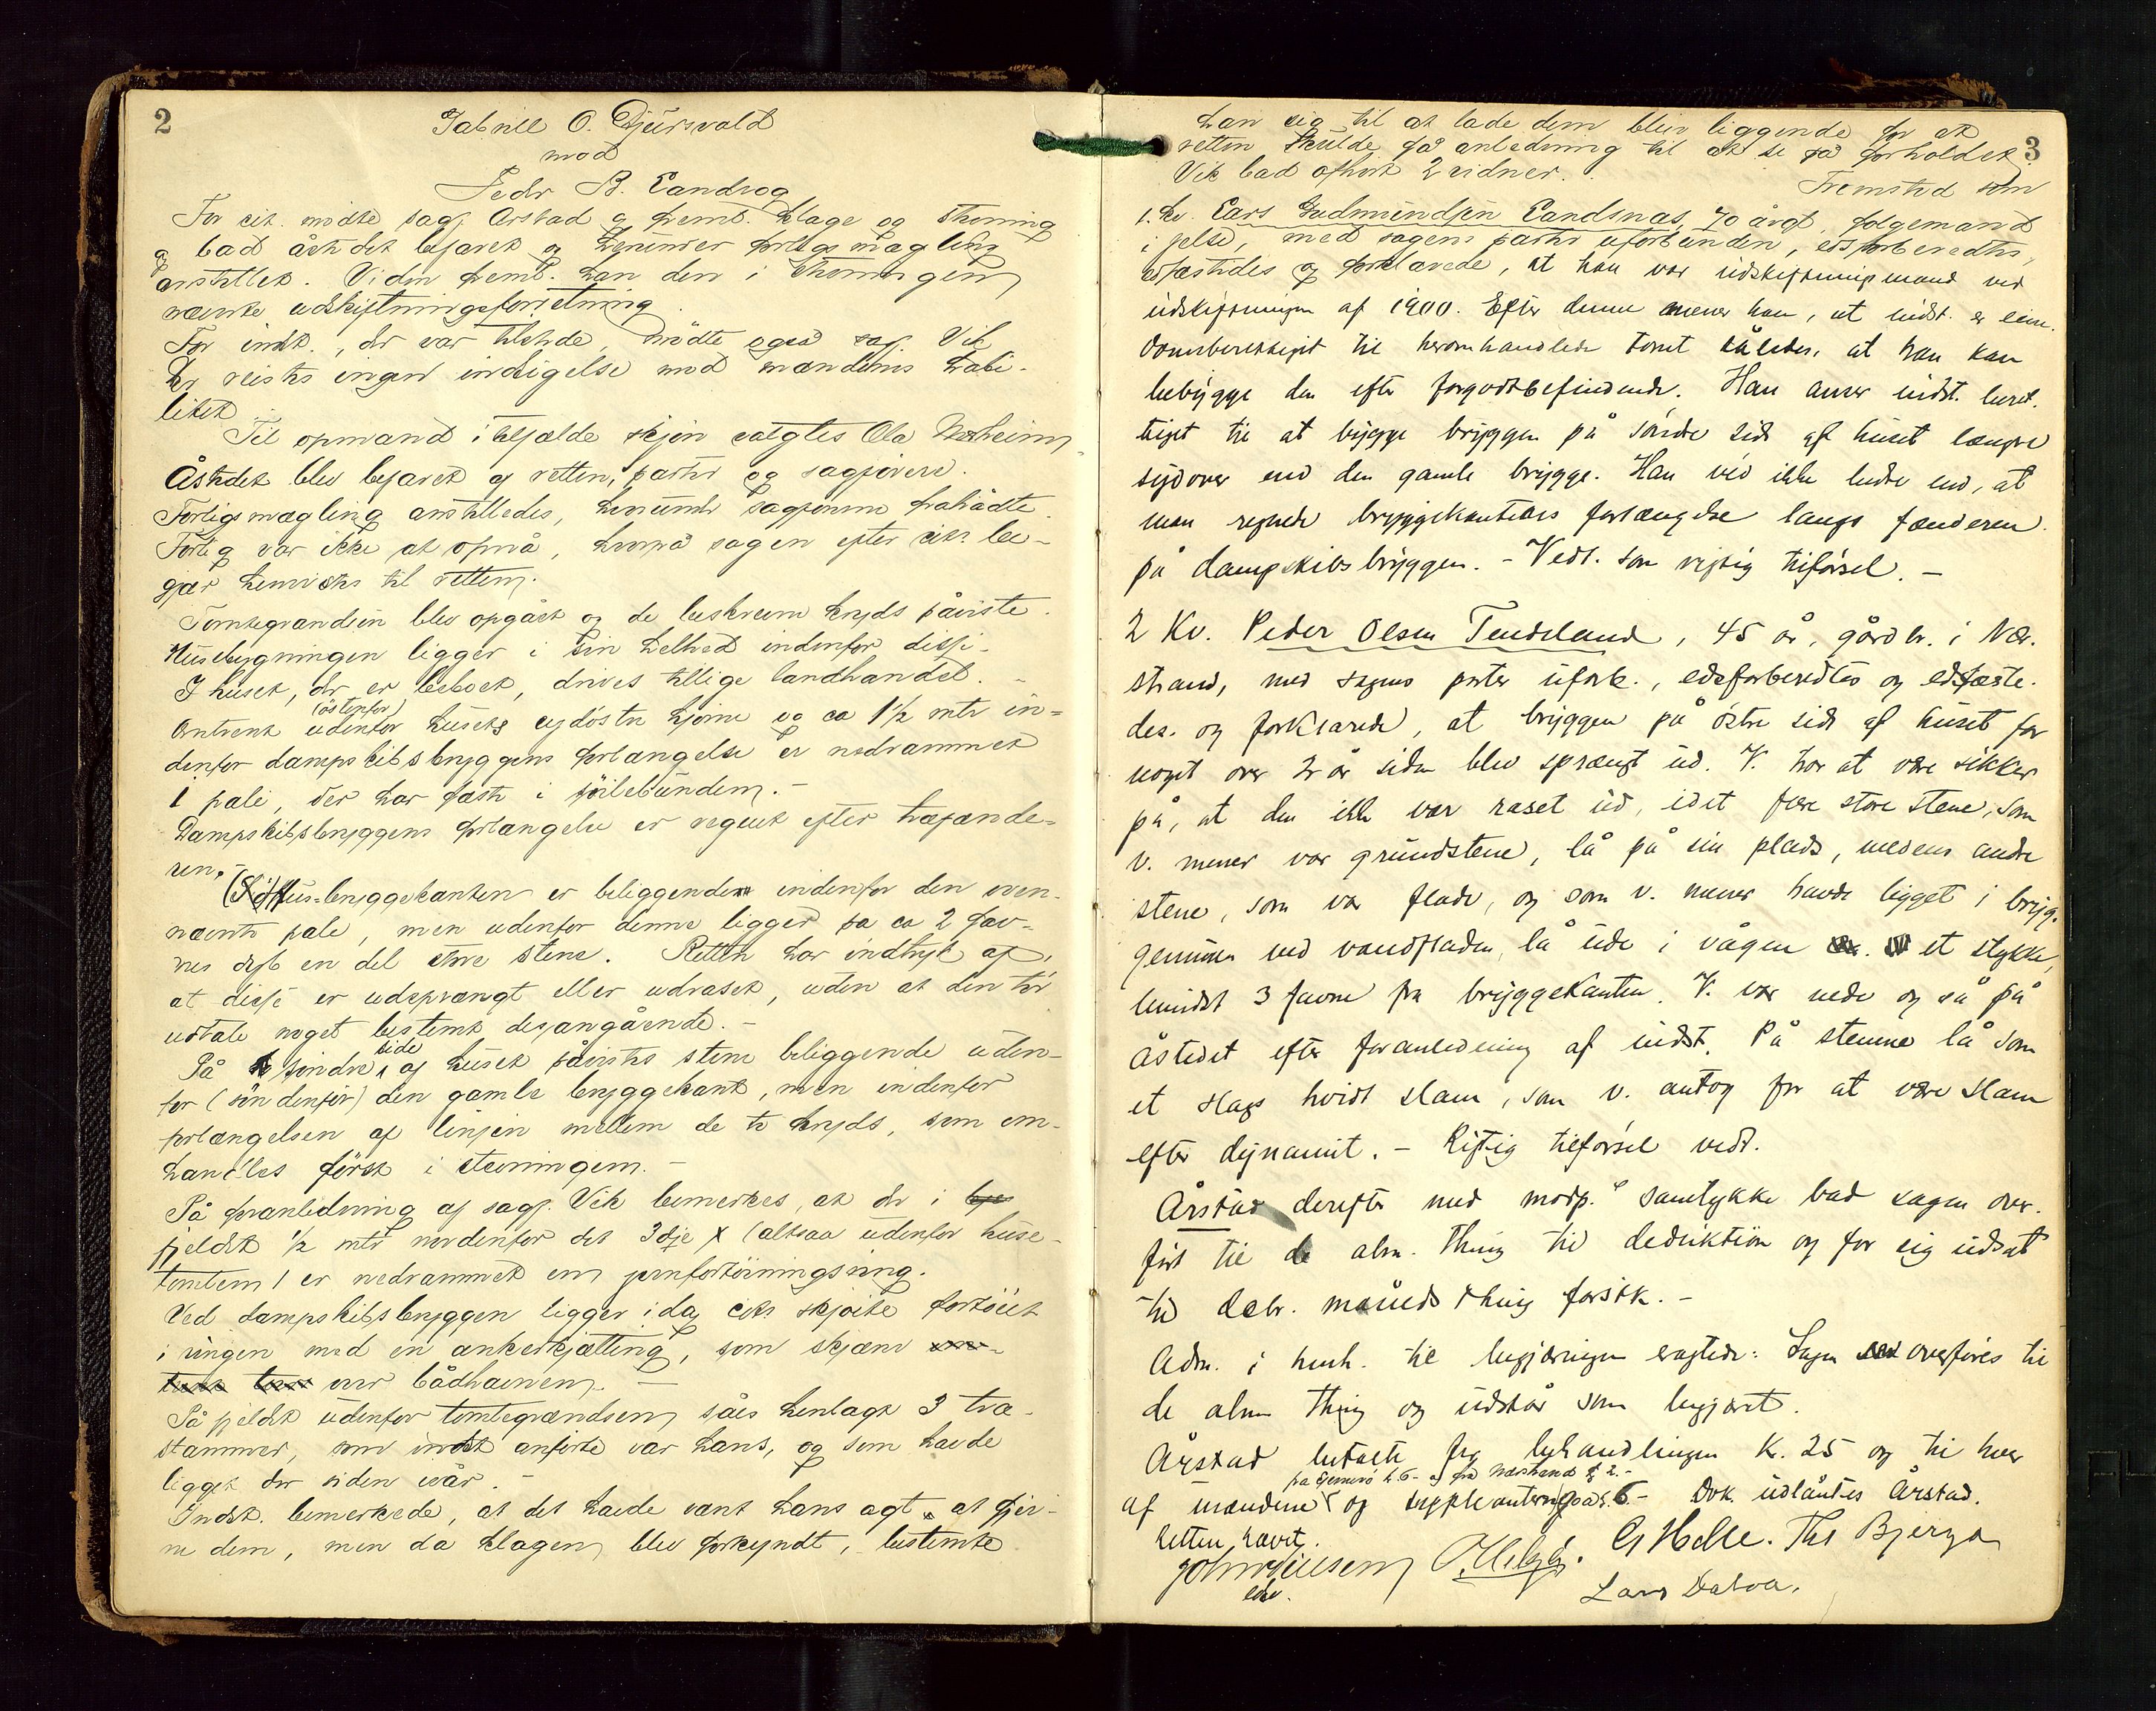 2
Gabriel O. Djursvold
mod
Peder B. Landrog
For cit. mødte sagf. Årstad og freml. klage og stævning
og bad åstedet befaret og herunder forligsmægling
anstillet. Viden freml. han den i stævningen
nævnte udskiftningsforretning.
For indst., der var tilstede, mødte også sagf. Vik
Der reistes ingen indsigelse mod mændenes habi-
litet.
Til opmand i tilfælde skjøn valgtes Ola Nesheim.
Åstedet blev befaret af retten, parter og sagførere.
Forligsmægling anstilledes, herunder sagførerne fratrådte.
Forlig var ikke at opnå, hvorpå sagen efter cits be-
gjær henvistes til retten.
Tomtegrændsen blev opgået og de beskrevne kryds påviste.
Husebygningen ligger i sin helhed indenfor disse.
I huset, der er beboet, drives tillige landhandel. -
Omtrent udenfor (østenfor) husets sydøstre hjørne og ca 1½ mtr in-
denfor dampskibsbryggens forlængelse er nedrammet
1 pæle, der har fæste i sjøbunden. -
Dampskibsbryggens forlængelse er regnet efter træfende-
ren.
(Sø)Hus-bryggekanten er beliggende indenfor den oven-
nævnte pæle, men udenfor denne ligger på ca 2 fav-
nes dyb en del større stene. Retten har indtryk af,
at disse er udsprængt eller udraset, uden at den tør
udtale noget bestemt desangående. -
På søndre side af huset påvistes stene beliggende uden-
for (søndenfor) den gamle bryggekant, men indenfor
forlængelsen af linjen mellem de to kryds, som om-
handles først i stævningen. -
På foranledning af sagf. Vik bemerkes, at der i
fjeldet ½ mtr nordenfor det 3dje x (altsaa udenfor huse-
tomten) er nedrammet en jernfortøiningsring.
Ved dampskibsbryggen ligger idag cits skjøite fortøiet
i ringen med en ankerkjætting, som skjærer
over bådhavnen. -
På fjeldet udenfor tomtegrændsen såes henlagt 3 træ-
stammer, som indst anførte var hans, og som havde
ligget der siden ivår. -
Indst. bemerkede, at det havde vært hans agt at fjer-
ne dem, men da klagen blev forkyndt, bestemte
3
han sig til at lade dem bliv liggende for at
retten skulde få anledning til at se på forholdet.
Vik bad afhørt 2 vidner. Fremsted som
1. Kv. Lars Gudmundsen Landsnæs, 70 årgl, følgemand
i Jelse, med sagens parter uforbunden, edsforberedtes,
edfæstedes og forklarede, at han var udskiftningsmand ved
udskiftningen af 1900. Efter denne mener han, at indst. er eien-
domsberettiget til heromhandlede tomt således, at han kan
bebygge den efter forgodtbefindende. Han anser indst. beret-
tiget til at bygge bryggen på søndre side af huset længre
sydover end den gamle brygge. Han véd ikke bedre end, at
man regnede bryggekantens forlængelse langs fænderen
på dampskibsbryggen. - Vedt. som rigtig tilførsel. -
2 Kv. Peder Olsen Tendeland, 45 år, gårdbr. i Nær-
strand, med sagens parter uforb., edsforberedtes og edfæste-
des og forklarede, at bryggen på østre side af huset for
noget over 2 år siden blev sprængt ud. V. tror at være sikker
på, at den ikke var raset ud, idet flere store stene, som
v. mener var grundstene, lå på sin plads, medens andre
stene, som var flade, og som v. mener havde ligget i bryg-
gemuren ved vandfladen, lå ude i vågen et stykke,
mindst 3 favne fra bryggekanten. V. var nede og så på
åstedet efter foranledning af indst. På stenene lå som
et slags hvidt slam, som v. antog for at være slam
efter dynamit. - Rigtig tilførsel vedt.
Årstad derefter med modp.s samtykke bad sagen over-
ført til de alm. thing til deduktion og for sig udsat
til decbr. måneds thing førstk. -
Adm. i henh. til begjæringen eragtede: Sagen overføres til
de alm thing og udstår som begjæret.
Årstad betalte for behandlingen K. 25 og til hver
af mændene (fra Hjelmerø k. 6 - og fra Nærstrand k 2. -) og suppleanterne K. 6 - Dok. udlåntes Årstad.
Retten hævet.
Johnsen O. Helgø. G Helle. Ths Bjerga
Lars Dalva.